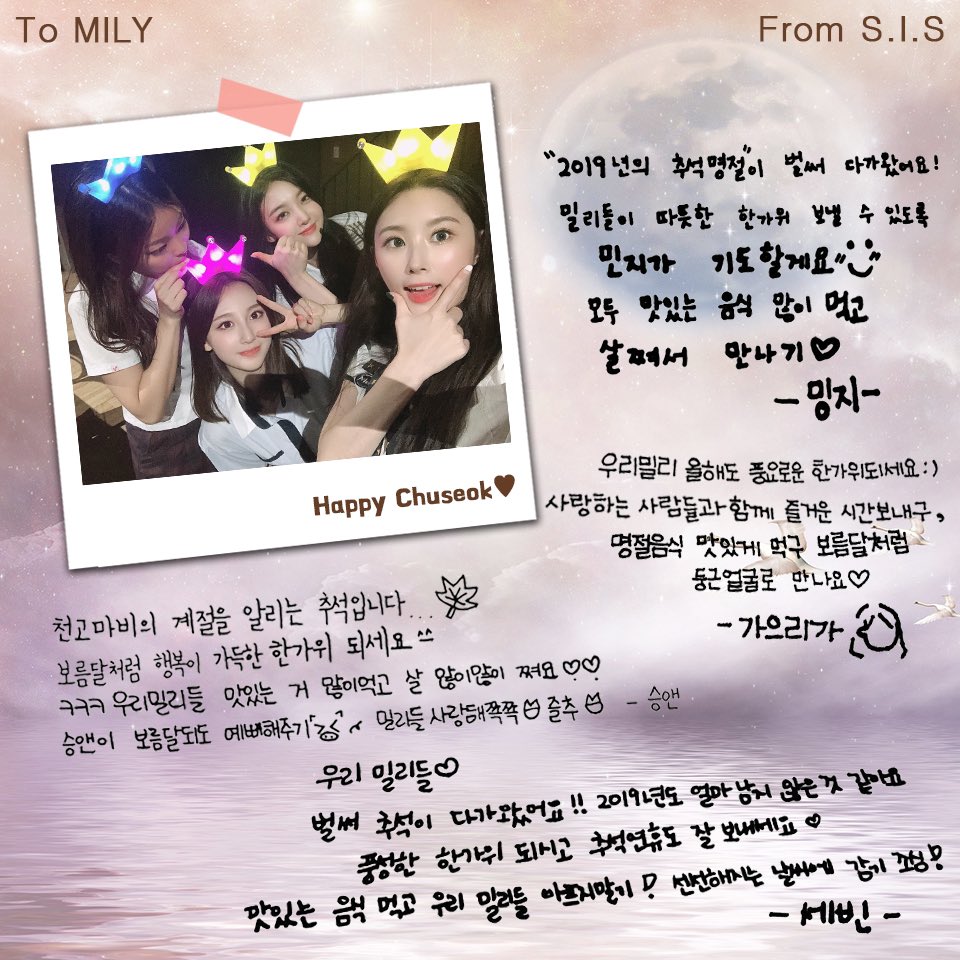 To MILY
From S.I.S
"2019년의 추석명절"이 벌써 다가왔어요!
밀리들이 따뜻한 한가위 보낼 수 있도록
민지가 기도할게요"
모두 맛있는 음식 많이 먹고
살쪄서 만나기♡
- 밍지-
Happy Chuseok♥
우리밀리 올해도 풍요로운 한가위되세요:)
사랑하는 사람들과 함께 즐거운 시간보내구,
명절음식 맛있게 먹구 보름달처럼
둥근얼굴로 만나요♡
- 가으리가
천고마비의 계절을 알리는 추석입니다...
보름달처럼 행복이 가득한 한가위 되세요 ^^
ㅋㅋㅋ 우리밀리들 맛있는 거 많이먹고 살 많이많이 쪄요♡♡
승앤이 보름달되도 예뻐해주기 ~ 밀리들 사랑해쪽쪽 즐추 - 승앤
우리 밀리들♡
벌써 추석이 다가왔어요!! 2019년도 얼마 남지 않은것 같아요
풍성한 한가위 되시고 추석연휴도 잘 보내세요♡
맛있는 음식 먹고 우리 밀리들 아프지말기! 선선해지는 날씨에 감기 조심!
- 세빈 -